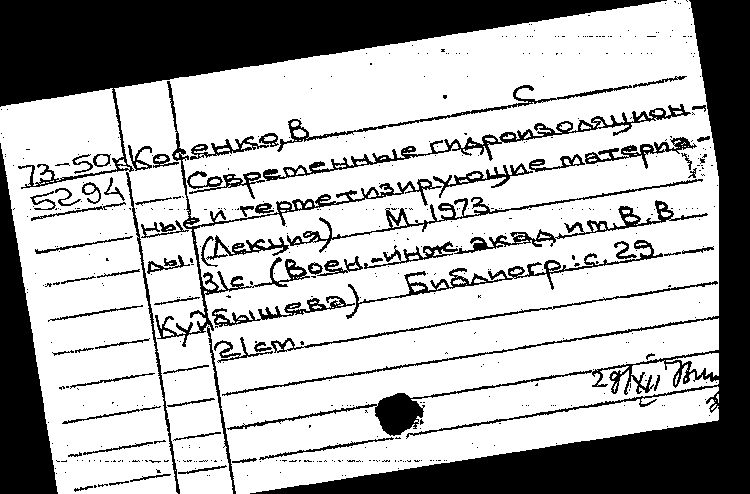 С
73-50к Косенко, В
5294 Современные гидроизоляцион-
ные и герметизирующие материа-
лы. (Лекция). М., 1973.
31с. (Воен.-инж. акад. им. В.В.
Куйбышева). Библиогр.: с. 29
21см.
29/XII